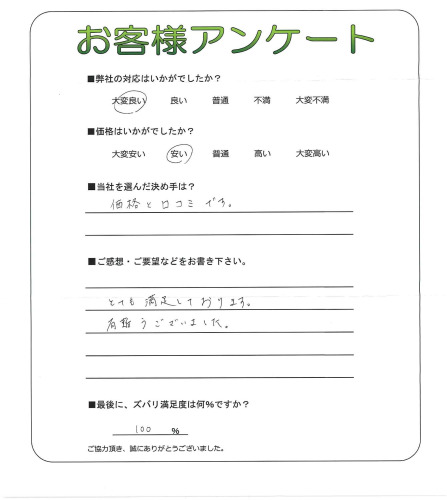 お客様アンケート
■弊社の対応はいかがでしたか？
大変良い 良い 普通 不満 大変不満
■価格はいかがでしたか？
大変安い 安い 普通 高い 大変高い
■当社を選んだ決め手は？
価格と口コミです。
■ご感想・ご要望などをお書き下さい。
とても満足しております。
有難うございました。
■最後に、ズバリ満足度は何％ですか？
100 ％
ご協力頂き、誠にありがとうございました。